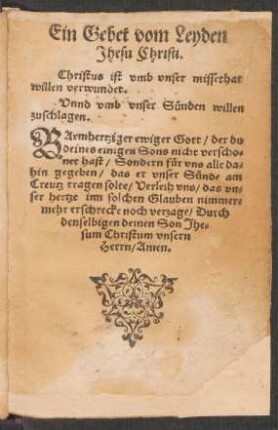 Ein Gebet vom Leyden
Jhesu Christi.
Christus ist vmb vnser missethat
willen verwundet.
Vnnd vmb vnser Sünden willen
zuschlagen.
BArmhertziger ewiger Gott / der du
deines einigen Sons nicht verscho-
net hast / Sondern für vns alle da-
hin gegeben / das er vnser Sünde am
Creutz tragen solte / Verleih vns / das vn-
ser hertze inn solchen Glauben nimmer-
mehr erschrecke noch verzage / Durch
denselbigen deinen Son Jhe-
sum Christum vnsern
Herrn / Amen.